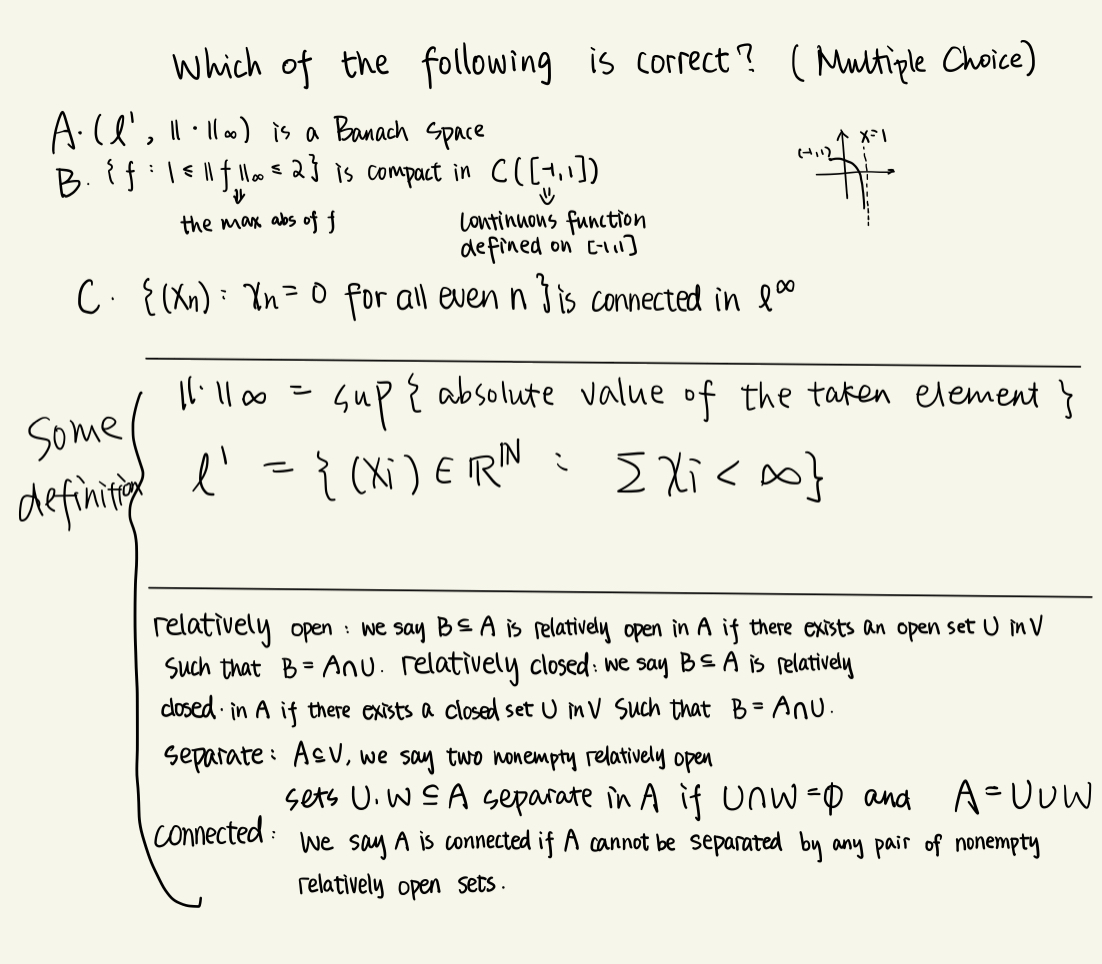 Which of the following is correct? (Multiple Choice)
A. (ℓ¹, ||·||∞) is a Banach space
B. {f : 1 ≤ ||f||∞ ≤ 2} is compact in C([-1,1])
⇓ the max abs of f
⇓ Continuous function
defined on [-1,1]
x=1
(-1,1)
C. {(Xn) : Xn = 0 for all even n} is connected in ℓ^∞
Some
definition
||·||∞ = sup { absolute value of the taken element }
ℓ¹ = {(Xi) ∈ ℝ^ℕ : Σ Xi < ∞}
relatively open : we say B ⊆ A is relatively open in A if there exists an open set U in V
such that B = A∩U. relatively closed: we say B ⊆ A is relatively
closed· in A if there exists a closed set U in V such that B = A∩U.
separate: A⊆V, we say two nonempty relatively open
sets U.W ⊆ A separate in A if U∩W = ϕ and A = U∪W
connected: We say A is connected if A cannot be separated by any pair of nonempty
relatively open sets.